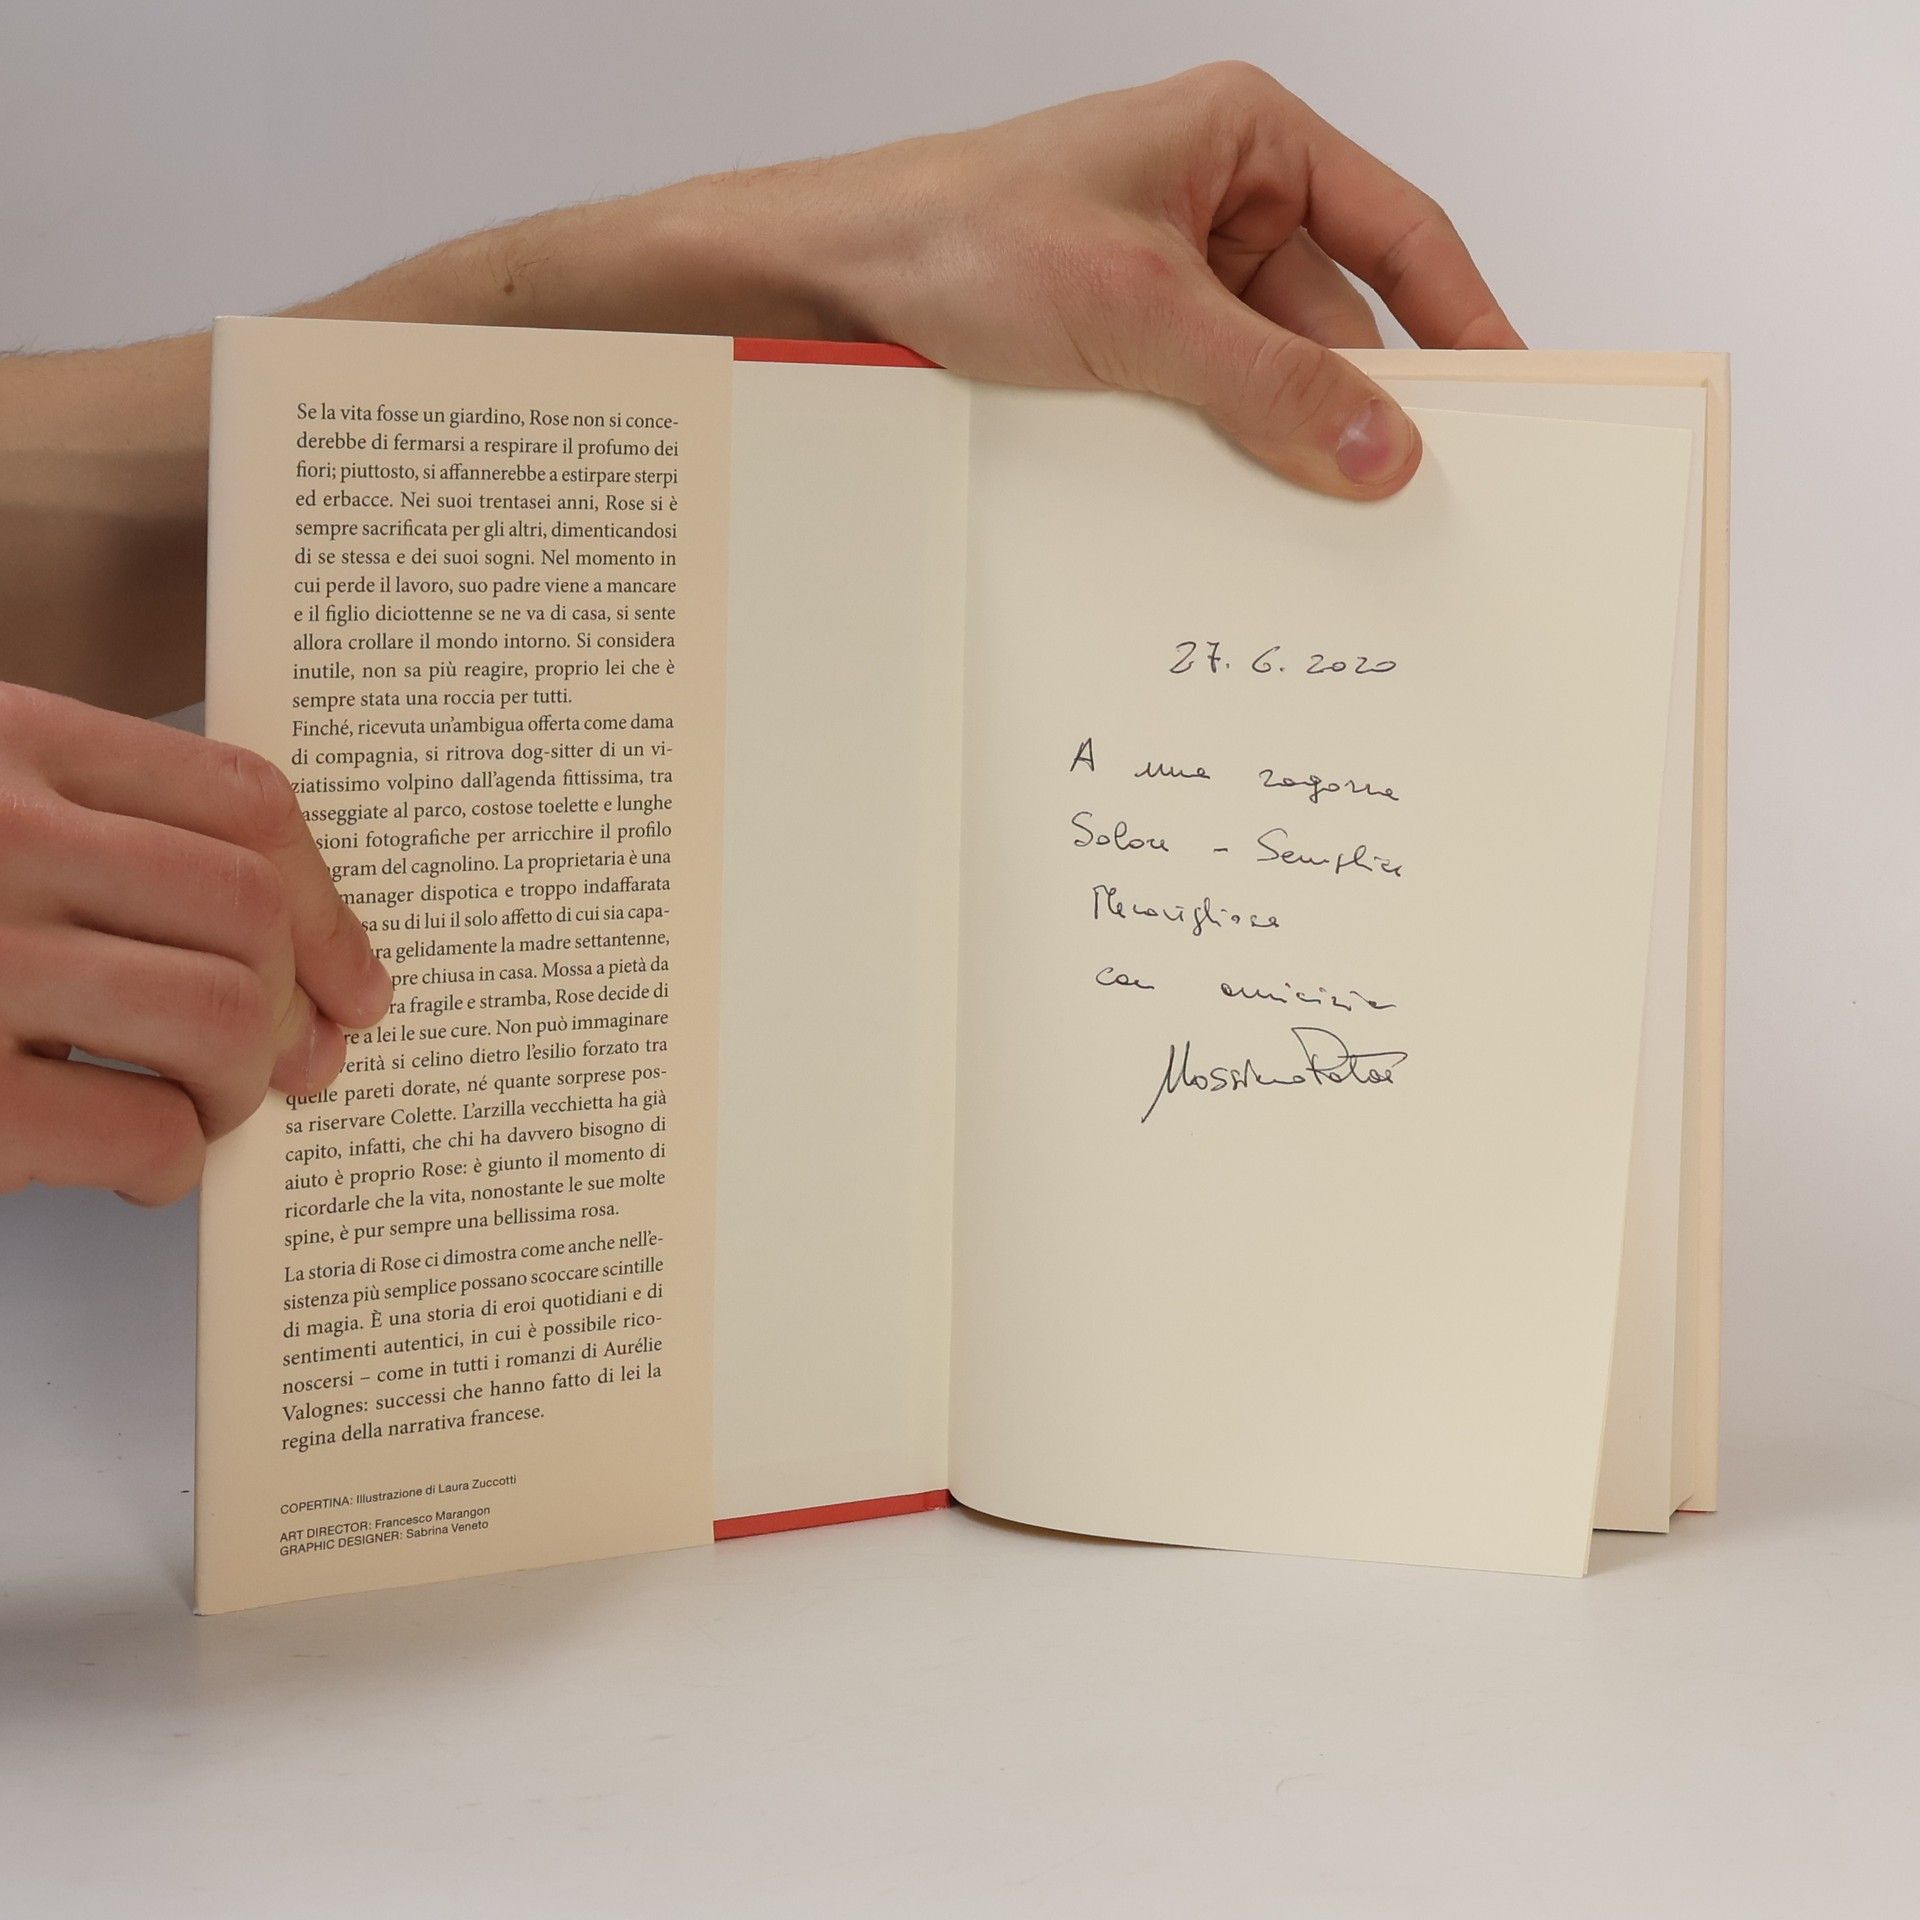 Se la vita fosse un giardino, Rose non si conce-
derebbe di fermarsi a respirare il profumo dei
fiori; piuttosto, si affannerebbe a estirpare sterpi
ed erbacce. Nei suoi trentasei anni, Rose si è
sempre sacrificata per gli altri, dimenticandosi
di se stessa e dei suoi sogni. Nel momento in
cui perde il lavoro, suo padre viene a mancare
e il figlio diciottenne se ne va di casa, si sente
allora crollare il mondo intorno. Si considera
inutile, non sa più reagire, proprio lei che è
sempre stata una roccia per tutti.
Finché, ricevuta un'ambigua offerta come dama
di compagnia, si ritrova dog-sitter di un vi-
ziatissimo volpino dall'agenda fittissima, tra
asseggiate al parco, costose toelette e lunghe
sioni fotografiche per arricchire il profilo
gram del cagnolino. La proprietaria è una
manager dispotica e troppo indaffarata
sa su di lui il solo affetto di cui sia capa-
ra gelidamente la madre settantenne,
pre chiusa in casa. Mossa a pietà da
ra fragile e stramba, Rose decide di
re a lei le sue cure. Non può immaginare
verità si celino dietro l'esilio forzato tra
quelle pareti dorate, né quante sorprese pos-
sa riservare Colette. L'arzilla vecchietta ha già
capito, infatti, che chi ha davvero bisogno di
aiuto è proprio Rose: è giunto il momento di
ricordarle che la vita, nonostante le sue molte
spine, è pur sempre una bellissima rosa.
La storia di Rose ci dimostra come anche nell'e-
sistenza più semplice possano scoccare scintille
di magia. È una storia di eroi quotidiani e di
sentimenti autentici, in cui è possibile rico-
noscersi – come in tutti i romanzi di Aurélie
Valognes: successi che hanno fatto di lei la
regina della narrativa francese.
COPERTINA: Illustrazione di Laura Zuccotti
ART DIRECTOR: Francesco Marangon
GRAPHIC DESIGNER: Sabrina Veneto
27. 6. 2020
A una ragazza
Solare - Semplice
Meravigliosa
con amicizia
Massimo